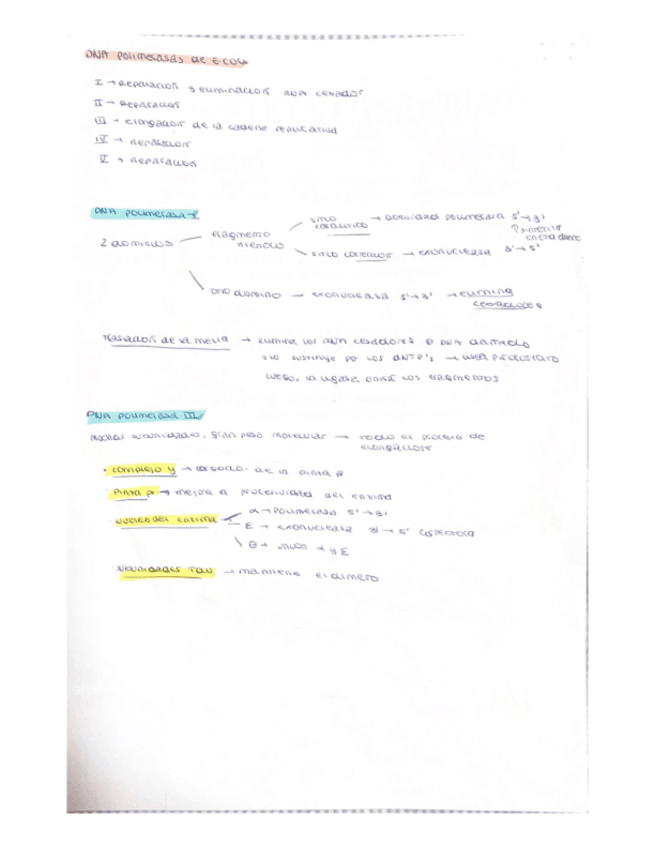 DNA polimerasas de E.coli
I → Reparación y eliminación RNA cebador
II → Reparación
III → elongación de la cadena replicativa
IV → Reparación
V → Reparación
DNA polimerasa I
2 dominios — fragmento Klenow — sitio catalítico → actividad polimerasa 5'→3'
sitio corrector → exonucleasa 3'→5'
otro dominio → exonucleasa 5'→3' → elimina cebadores
Traslación de la mella → elimina los RNA cebadores o DNA dañado
y lo sustituye por los dNTP's →
luego, la ligasa unirá los fragmentos
DNA polimerasa III
muchas subunidades, gran peso molecular → todo el proceso de
elongación
· complejo γ → cargador de la pinza β
· pinza β → mejora la procesividad del enzima
· núcleo del enzima — α → polimerasa 5'→3'
ε → exonucleasa 3'→5' correctora
θ → unión α y ε
· subunidades tau → mantiene el dímero